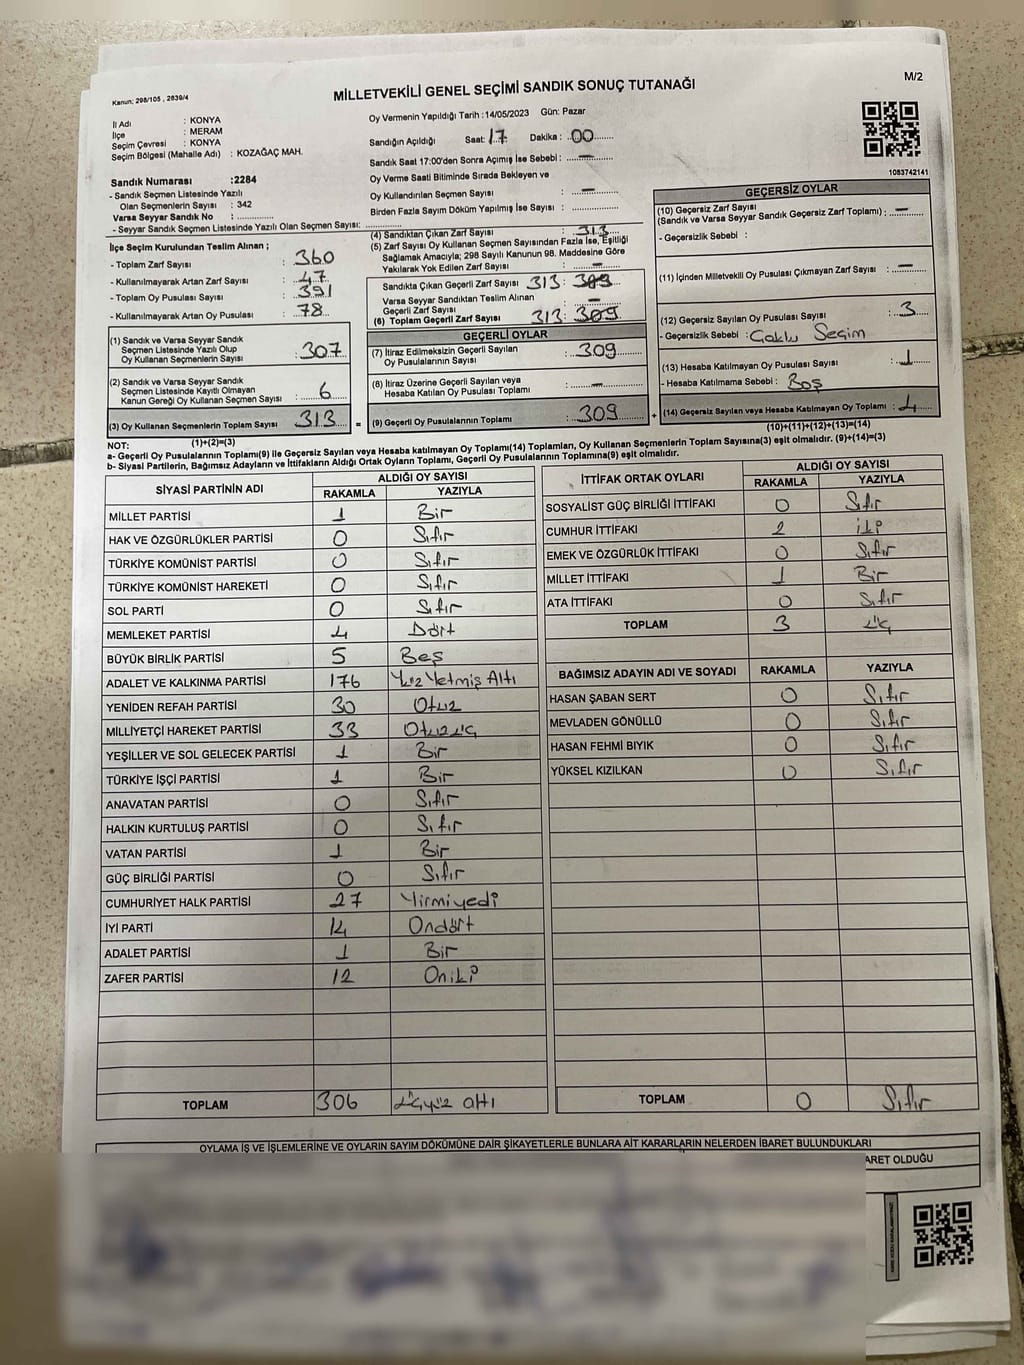 Kanun: 298/105 , 2839/4
MİLLETVEKİLİ GENEL SEÇİMİ SANDIK SONUÇ TUTANAĞI
M/2
İl Adı : KONYA
İlçe : MERAM
Seçim Çevresi : KONYA
Seçim Bölgesi (Mahalle Adı) : KOZAĞAÇ MAH.
Sandık Numarası :2284
- Sandık Seçmen Listesinde Yazılı
Olan Seçmenlerin Sayısı : 342
Varsa Seyyar Sandık No : ..............
- Seyyar Sandık Seçmen Listesinde Yazılı Olan Seçmen Sayısı: ..............
Oy Vermenin Yapıldığı Tarih :14/05/2023 Gün: Pazar
Sandığın Açıldığı Saat: 17 Dakika : 00
Sandık Saat 17:00'den Sonra Açımış İse Sebebi : —
Oy Verme Saati Bitiminde Sırada Bekleyen ve
Oy Kullandırılan Seçmen Sayısı : —
Birden Fazla Sayım Döküm Yapılmış İse Sayısı : ..............
1083742141
İlçe Seçim Kurulundan Teslim Alınan ;
- Toplam Zarf Sayısı : 360
- Kullanılmayarak Artan Zarf Sayısı : 47
- Toplam Oy Pusulası Sayısı : 391
- Kullanılmayarak Artan Oy Pusulası : 78
(1) Sandık ve Varsa Seyyar Sandık
Seçmen Listesinde Yazılı Olup
Oy Kullanan Seçmenlerin Sayısı : 307
(2) Sandık ve Varsa Seyyar Sandık
Seçmen Listesinde Kayıtlı Olmayan
Kanun Gereği Oy Kullanan Seçmen Sayısı : 6
(3) Oy Kullanan Seçmenlerin Toplam Sayısı : 313
(1)+(2)=(3)
(4) Sandıktan Çıkan Zarf Sayısı : 313
(5) Zarf Sayısı Oy Kullanan Seçmen Sayısından Fazla İse, Eşitliği
Sağlamak Amacıyla; 298 Sayılı Kanunun 98. Maddesine Göre
Yakılarak Yok Edilen Zarf Sayısı : —
Sandıkta Çıkan Geçerli Zarf Sayısı 313 : 309
Varsa Seyyar Sandıktan Teslim Alınan
Geçerli Zarf Sayısı : —
(6) Toplam Geçerli Zarf Sayısı 313 : 309
GEÇERLİ OYLAR
(7) İtiraz Edilmeksizin Geçerli Sayılan
Oy Pusulalarının Sayısı : 309
(8) İtiraz Üzerine Geçerli Sayılan veya
Hesaba Katılan Oy Pusulası Toplamı : —
= (9) Geçerli Oy Pusulalarının Toplamı : 309 +
GEÇERSİZ OYLAR
(10) Geçersiz Zarf Sayısı
(Sandık ve Varsa Seyyar Sandık Geçersiz Zarf Toplamı) : —
- Geçersizlik Sebebi :
(11) İçinden Milletvekili Oy Pusulası Çıkmayan Zarf Sayısı : —
(12) Geçersiz Oy Pusulası Sayısı : 3
- Geçersizlik Sebebi : Çoklu Seçim
(13) Hesaba Katılmayan Oy Pusulası Sayısı : 1
- Hesaba Katılmama Sebebi : Boş
(14) Geçersiz Sayılan veya Hesaba Katılmayan Oy Toplamı : 4
(10)+(11)+(12)+(13)=(14)
NOT:
a- Geçerli Oy Pusulalarının Toplamı(9) ile Geçersiz Sayılan veya Hesaba katılmayan Oy Toplamı(14) Toplamları, Oy Kullanan Seçmenlerin Toplam Sayısına(3) eşit olmalıdır. (9)+(14)=(3)
b- Siyasi Partilerin, Bağımsız Adayların ve İttifakların Aldığı Ortak Oyların Toplamı, Geçerli Oy Pusulalarının Toplamına(9) eşit olmalıdır.
SİYASİ PARTİNİN ADI ALDIĞI OY SAYISI
RAKAMLA YAZIYLA
MİLLET PARTİSİ 1 Bir
HAK VE ÖZGÜRLÜKLER PARTİSİ 0 Sıfır
TÜRKİYE KOMÜNİST PARTİSİ 0 Sıfır
TÜRKİYE KOMÜNİST HAREKETİ 0 Sıfır
SOL PARTİ 0 Sıfır
MEMLEKET PARTİSİ 4 Dört
BÜYÜK BİRLİK PARTİSİ 5 Beş
ADALET VE KALKINMA PARTİSİ 176 Yüz Yetmiş Altı
YENİDEN REFAH PARTİSİ 30 Otuz
MİLLİYETÇİ HAREKET PARTİSİ 33 Otuzüç
YEŞİLLER VE SOL GELECEK PARTİSİ 1 Bir
TÜRKİYE İŞÇİ PARTİSİ 1 Bir
ANAVATAN PARTİSİ 0 Sıfır
HALKIN KURTULUŞ PARTİSİ 0 Sıfır
VATAN PARTİSİ 1 Bir
GÜÇ BİRLİĞİ PARTİSİ 0 Sıfır
CUMHURİYET HALK PARTİSİ 27 Yirmiyedi
İYİ PARTİ 14 Ondört
ADALET PARTİSİ 1 Bir
ZAFER PARTİSİ 12 Oniki
TOPLAM 306 Üçyüz altı
İTTİFAK ORTAK OYLARI ALDIĞI OY SAYISI
RAKAMLA YAZIYLA
SOSYALİST GÜÇ BİRLİĞİ İTTİFAKI 0 Sıfır
CUMHUR İTTİFAKI 2 iki
EMEK VE ÖZGÜRLÜK İTTİFAKI 0 Sıfır
MİLLET İTTİFAKI 1 Bir
ATA İTTİFAKI 0 Sıfır
TOPLAM 3 Üç
BAĞIMSIZ ADAYIN ADI VE SOYADI RAKAMLA YAZIYLA
HASAN ŞABAN SERT 0 Sıfır
MEVLADEN GÖNÜLLÜ 0 Sıfır
HASAN FEHMI BIYIK 0 Sıfır
YÜKSEL KIZILKAN 0 Sıfır
TOPLAM 0 Sıfır
OYLAMA İŞ VE İŞLEMLERİNE VE OYLARIN SAYIM DÖKÜMÜNE DAİR ŞİKAYETLERLE BUNLARA AİT KARARLARIN NELERDEN İBARET BULUNDUKLARI
ARET OLDUĞU